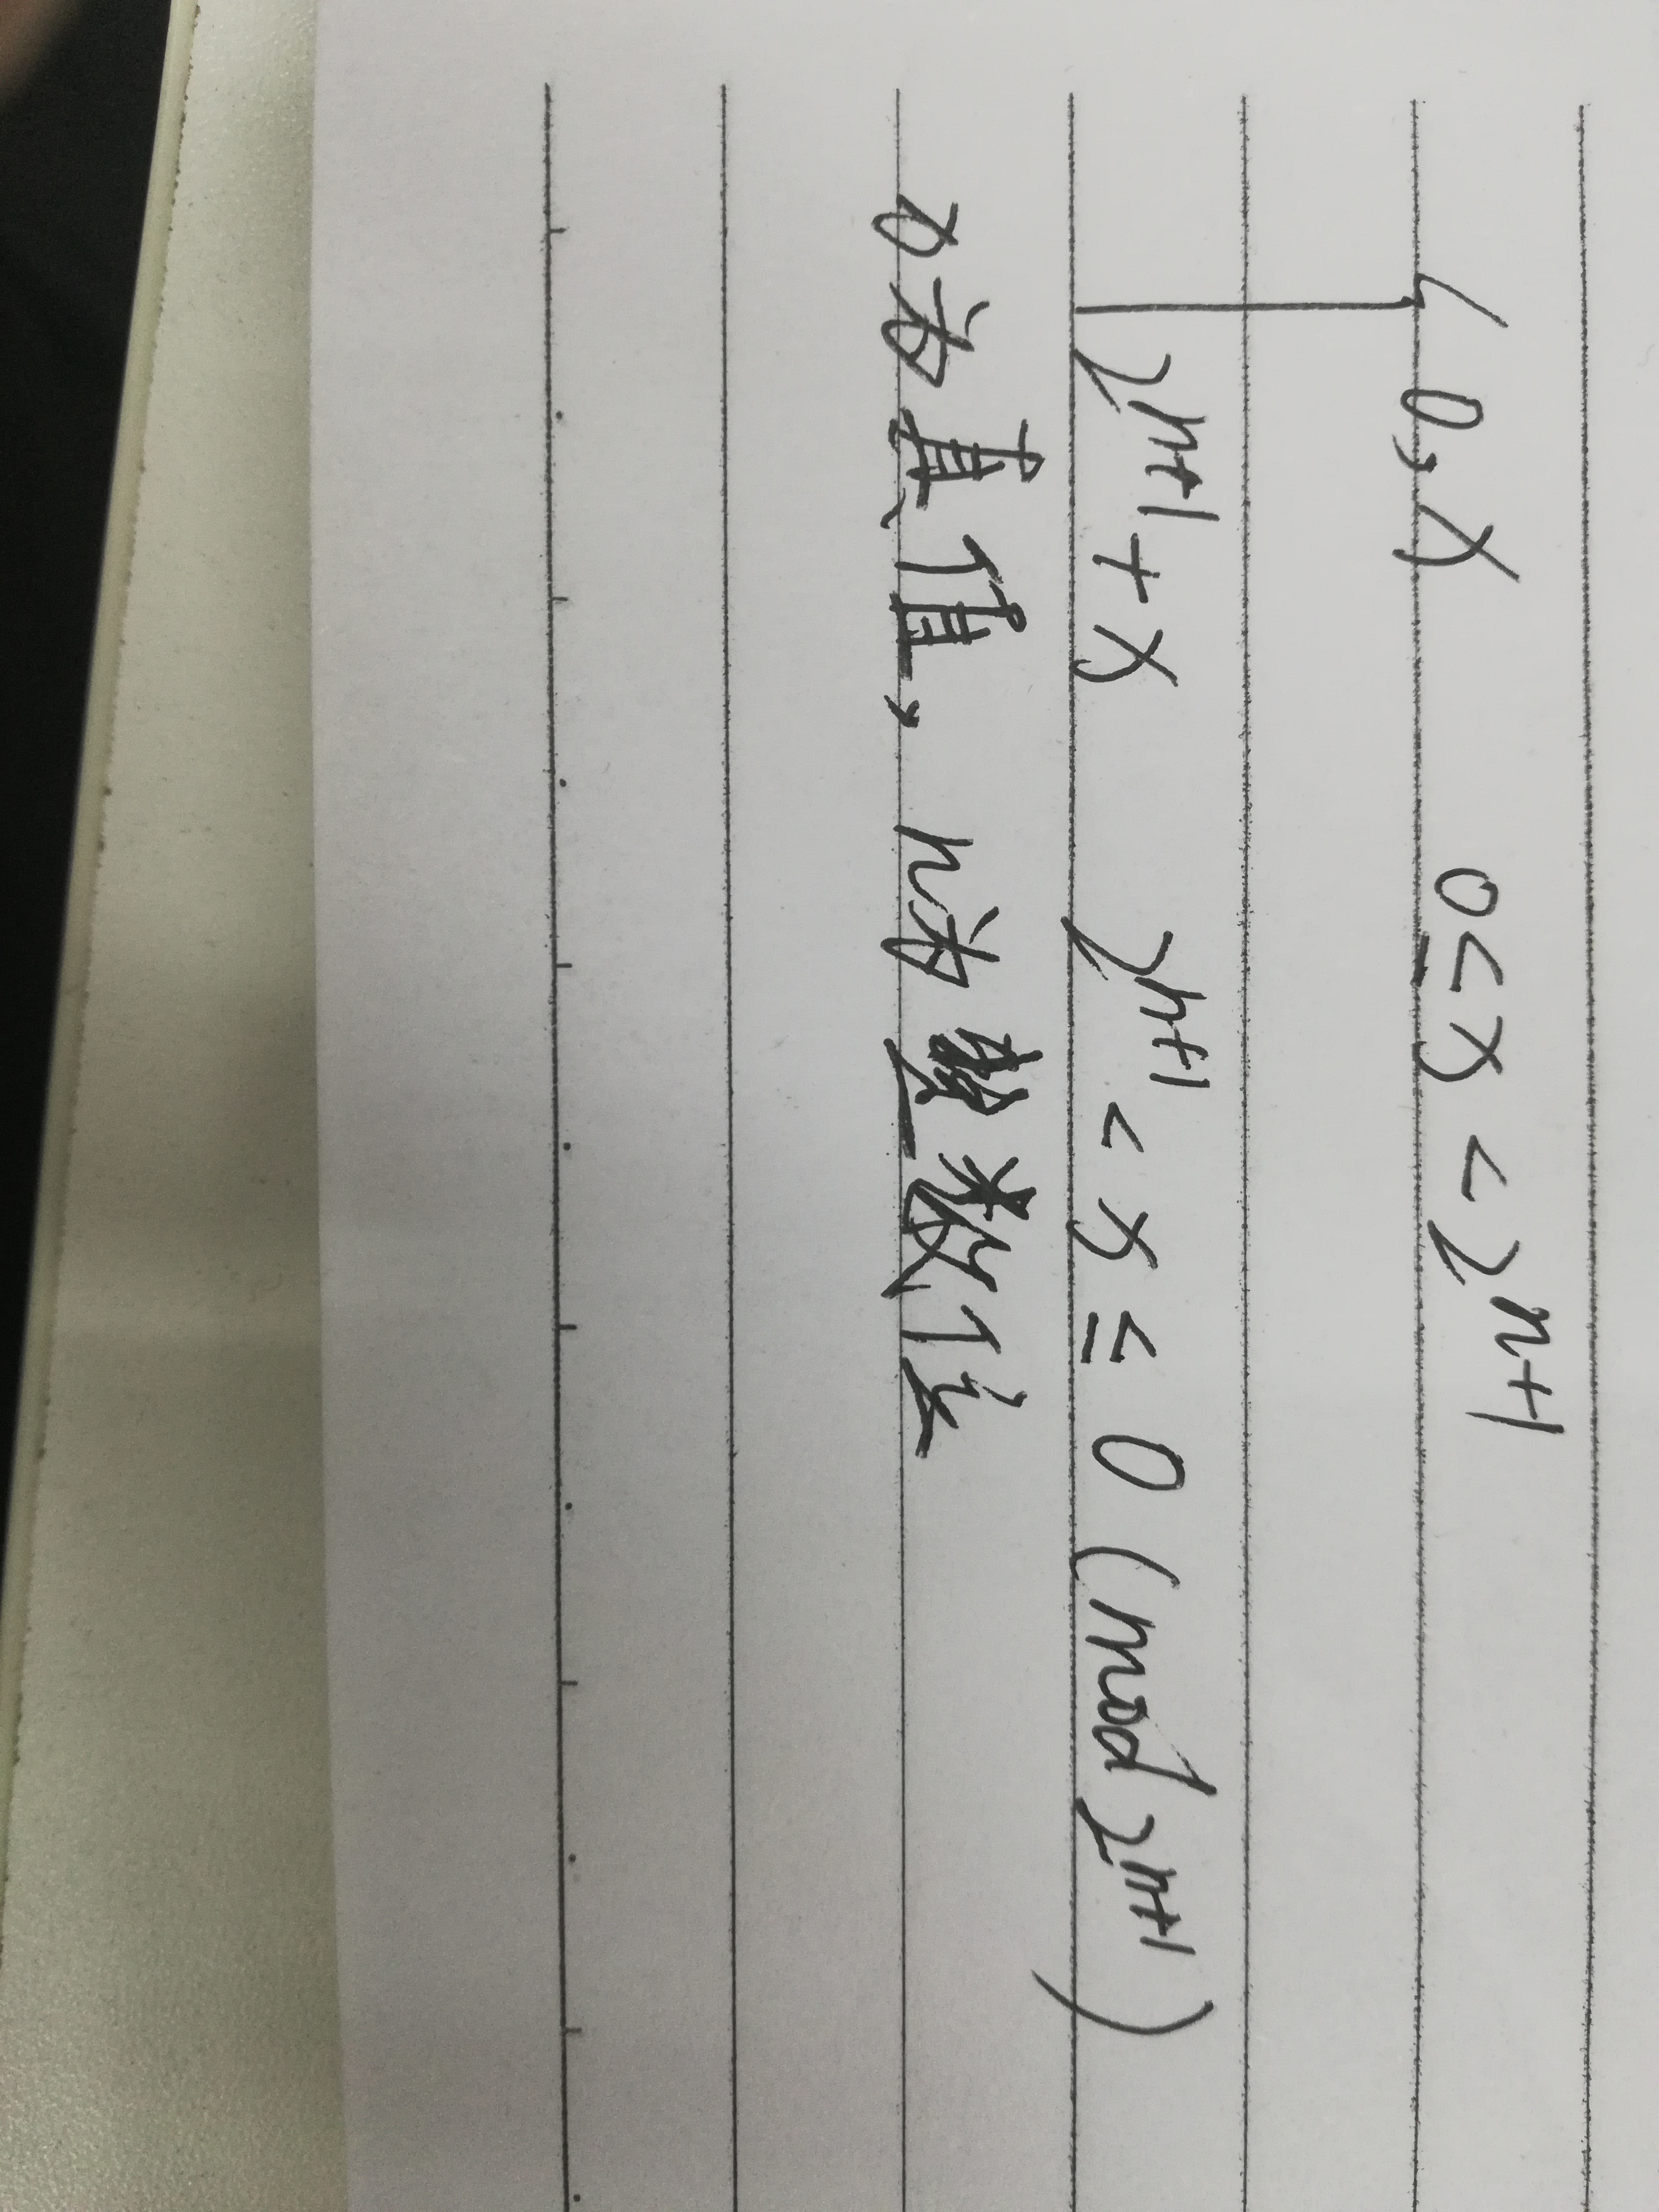 0,x 0≤x<2ⁿ⁺¹
2ⁿ⁺¹+x 2ⁿ⁺¹<x≤0(mod 2ⁿ⁺¹)
x为真值,n为整数位